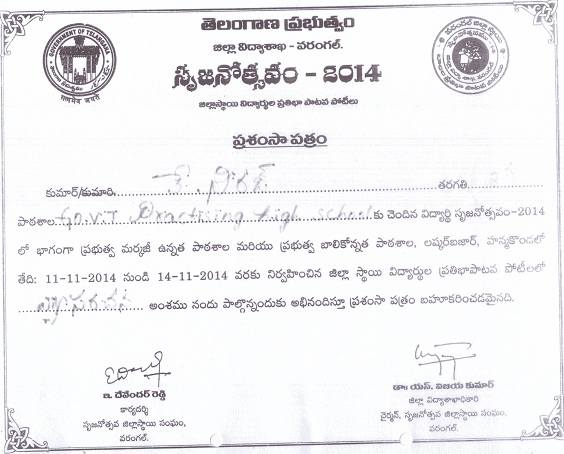 తెలంగాణ ప్రభుత్వం
జిల్లా విద్యాశాఖ - వరంగల్.
సృజనోత్సవం - 2014
జిల్లాస్థాయి విద్యార్థుల ప్రతిభా పాటవ పోటీలు
GOVERNMENT OF TELANGANA
सत्यमेव जयते
ప్రశంసా పత్రం
కుమార్/కుమారి. కె. తరగతి
పాఠశాల Govt Practising high school కు చెందిన విద్యార్థి సృజనోత్సవం-2014
లో భాగంగా ప్రభుత్వ మర్కజీ ఉన్నత పాఠశాల మరియు ప్రభుత్వ బాలికోన్నత పాఠశాల, లష్కర్‌బజార్, హన్మకొండలో
తేది: 11-11-2014 నుండి 14-11-2014 వరకు నిర్వహించిన జిల్లా స్థాయి విద్యార్థుల ప్రతిభాపాటవ పోటీలలో
వ్యాసరచన అంశము నందు పాల్గొన్నందుకు అభినందిస్తూ ప్రశంసా పత్రం బహూకరించడమైనది.
ఇ. దేవేందర్ రెడ్డి
కార్యదర్శి
సృజనోత్సవ జిల్లాస్థాయి సంఘం,
వరంగల్.
డా॥ యస్. విజయ కుమార్
జిల్లా విద్యాశాఖాధికారి
చైర్మన్, సృజనోత్సవ జిల్లాస్థాయి సంఘం,
వరంగల్.